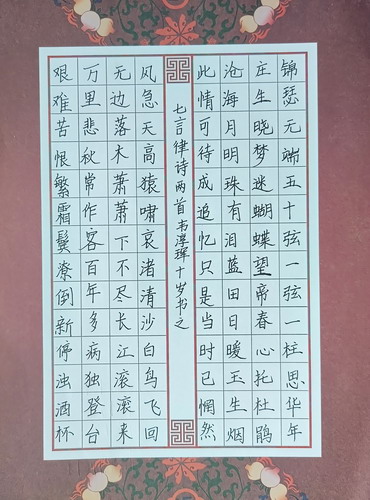 锦瑟无端五十弦一弦一柱思华年
庄生晓梦迷蝴蝶望帝春心托杜鹃
沧海月明珠有泪蓝田日暖玉生烟
此情可待成追忆只是当时已惘然
七言律诗两首韦十岁书之
风急天高猿啸哀渚清沙白鸟飞回
无边落木萧萧下不尽长江滚滚来
万里悲秋常作客百年多病独登台
艰难苦恨繁霜鬓潦倒新停浊酒杯